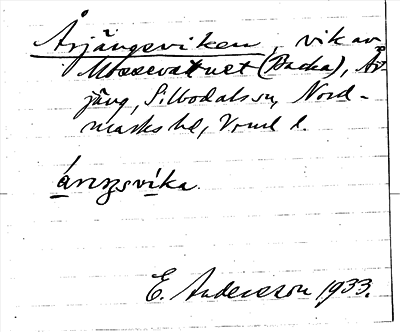 Årjängsviken, vik av
Mossevatnet (Backa), År-
jäng, Silbodals sn, Nord-
marks hd, Vrml l.
E. Andersson 1933.